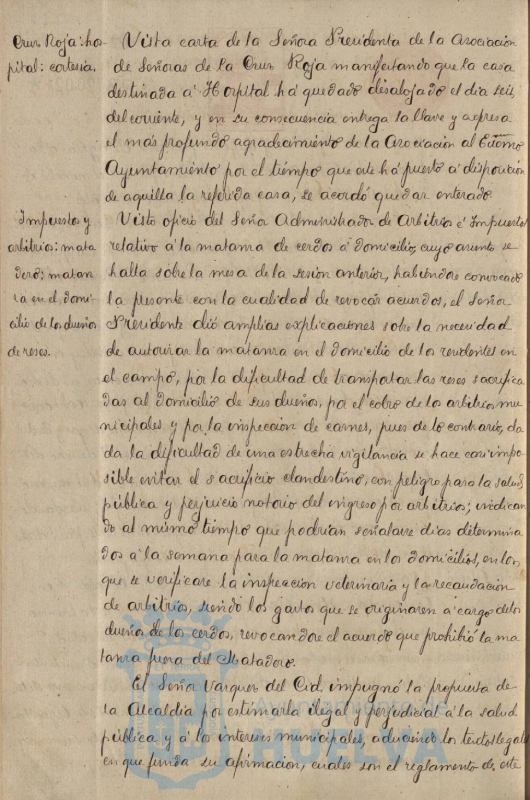 Cruz Roja: hos-
pital: cortesia.
Vista carta de la Señora Presidenta de la Asociación
de Señoras de la Cruz Roja manifestando que la casa
destinada á Hospital há quedado desalojada el dia seis
del corriente, y en su consecuencia entrega la llave y expresa
el más profundo agradecimiento de la Asociación al Excmo
Ayuntamiento por el tiempo que este há puesto á disposición
de aquella la referida casa, se acordó quedar enterado.
Impuestos y
arbitrios: mata
dero: matan
za en el domi-
cilio de los dueños
de reses.
Visto oficio del Señor Administrador de Arbitrios é Impuestos
relativo á la matanza de cerdos á domicilio, cuyo asunto se
halla sobre la mesa de la sesion anterior, habiéndose convocado
la presente con la cualidad de revocar acuerdos, el Señor
Presidente dió amplias explicaciones sobre la necesidad
de autorizar la matanza en el domicilio de los residentes en
el campo, por la dificultad de transportar las reses sacrifica
das al domicilio de sus dueños, por el cobro de los arbitrios mu
nicipales y por la inspeccion de carnes, pues de lo contrario, da
da la dificultad de una estrecha vigilancia se hace casi impo
sible evitar el sacrificio clandestino, con peligro para la salud
pública y perjuicio notorio del ingreso por arbitrios; indican
do al mismo tiempo que podrian señalarse dias determina
dos á la semana para la matanza en los domicilios, en los
que se verificare la inspección veterinaria y la recaudación
de arbitrios, siendo los gastos que se originaren á cargo de los
dueños de los cerdos, revocandose el acuerdo que prohibió la ma
tanza fuera del Matadero.
El Señor Vazquez del Cid impugnó la propuesta de
la Alcaldia por estimarla ilegal y perjudicial á la salud
pública y á los intereses municipales, aduciendo los textos legales
en que funda su afirmacion, cuales son el reglamento de este
Ayuntamiento de
HUELVA